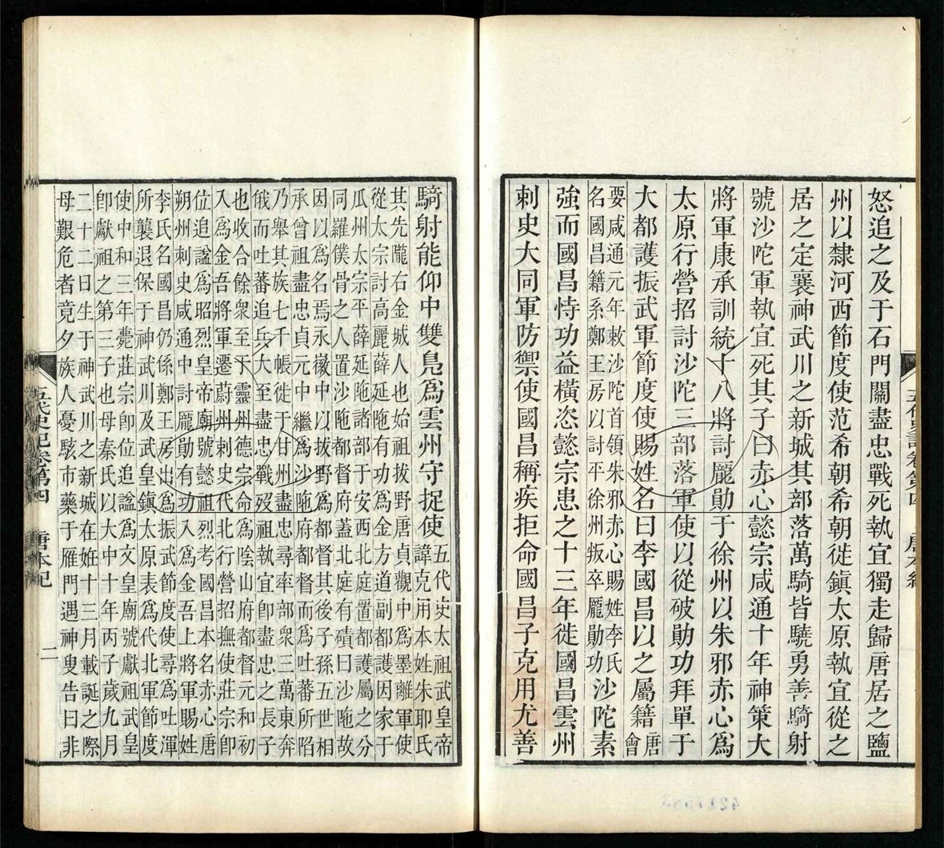 怒追之及于石門關盡忠戰死執宜獨走歸唐居之鹽
州以隸河西節度使范希朝希朝徙鎮太原執宜從之
居之定襄神武川之新城其部落萬騎皆驍勇善騎射
號沙陀軍執宜死其子曰赤心懿宗咸通十年神策大
將軍康承訓統十八將討龐勛于徐州以朱邪赤心爲
太原行營招討沙陀三部落軍使以從破勛功拜單于
大都護振武軍節度使賜姓名曰李國昌以之屬籍唐會
要咸通元年敕沙陀首領朱邪赤心賜姓李氏
名國昌籍系鄭王房以討平徐州叛卒龐勛功沙陀素
強而國昌恃功益橫恣懿宗患之十三年徙國昌雲州
刺史大同軍防禦使國昌稱疾拒命國昌子克用尤善
五代史記卷第四 唐本紀
騎射能仰中雙鳧爲雲州守捉使五代史太祖武皇帝
諱克用本姓朱耶氏
其先隴右金城人也始祖拔野唐貞觀中爲墨離軍使
從太宗討高麗薛延陁有功爲金方道副都護因家于
瓜州太宗平薛延陁諸部于安西北庭置都護屬之分
同羅僕骨之人置沙陁都督府蓋北庭有磧曰沙陁故
因以爲名焉永徽中以拔野爲都督其後子孫五世相
承曾祖盡忠貞元中繼爲沙陁府都督而爲吐蕃所陷
乃舉其族七千帳徙于甘州盡忠尋率部衆三萬東奔
俄而吐蕃追兵大至盡忠戰歿祖執宜卽盡忠之長子
也收合餘衆至于靈州德宗命爲陰山府都督元和初
入爲金吾將軍遷蔚州刺史代北行營招撫使莊宗卽
位追諡爲昭烈皇帝廟號懿祖烈考國昌本名赤心唐
朔州刺史咸通中討龐勛有功入爲金吾上將軍賜姓
李氏名國昌仍係鄭王房出爲振武節度使尋爲吐渾
所襲退保于神武川及武皇鎮太原表爲代北軍節度
使中和三年薨莊宗卽位追諡爲文皇廟號獻祖武皇
卽獻祖之第三子也母秦氏以大中十年丙子歲九月
二十二日生于神武川之新城在妊十三月載誕之際
母艱危者竟夕族人憂駭市藥于雁門遇神叟告曰非
五代史記卷第四 唐本紀 二